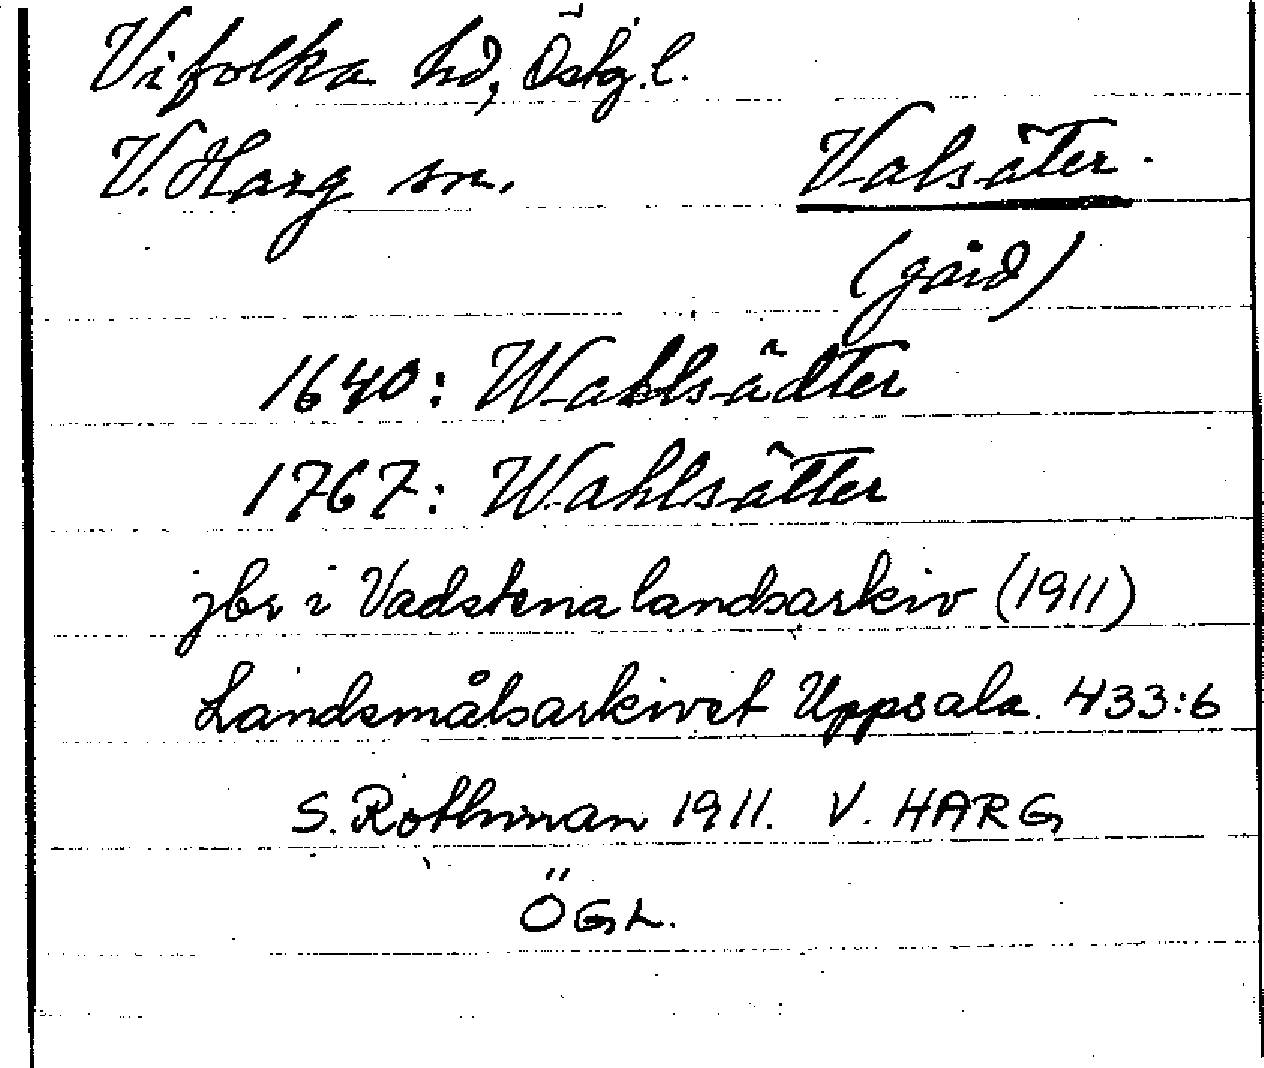 Vifolka hd, Östg.l.
V. Harg sn. Valsäter.
(gård)
1640: Wahlsädter
1767: Wahlsätter
jbr i Vadstena landsarkiv (1911)
Landsmålsarkivet Uppsala 433:6
S. Rothman 1911. V. HARG
ÖGL.